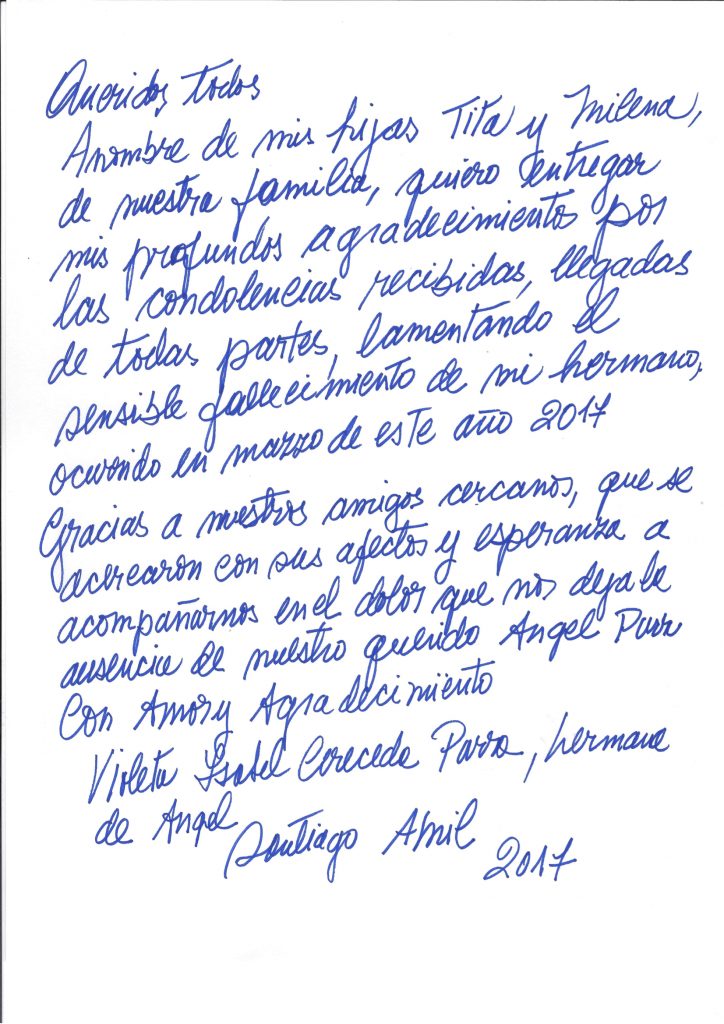 Queridos todos
A nombre de mis hijas Tita y Milena,
de nuestra familia, quiero entregar
mis profundos agradecimientos por
las condolencias recibidas, llegadas
de todas partes, lamentando el
sensible fallecimiento de mi hermano,
ocurrido en marzo de este año 2017
Gracias a nuestros amigos cercanos, que se
acercaron con sus afectos y esperanza a
acompañarnos en el dolor que nos deja la
ausencia de nuestro querido Angel Parra
Con Amor y Agradecimiento
Violeta Isabel Cereceda Parra, hermana
de Angel
Santiago Abril
2017